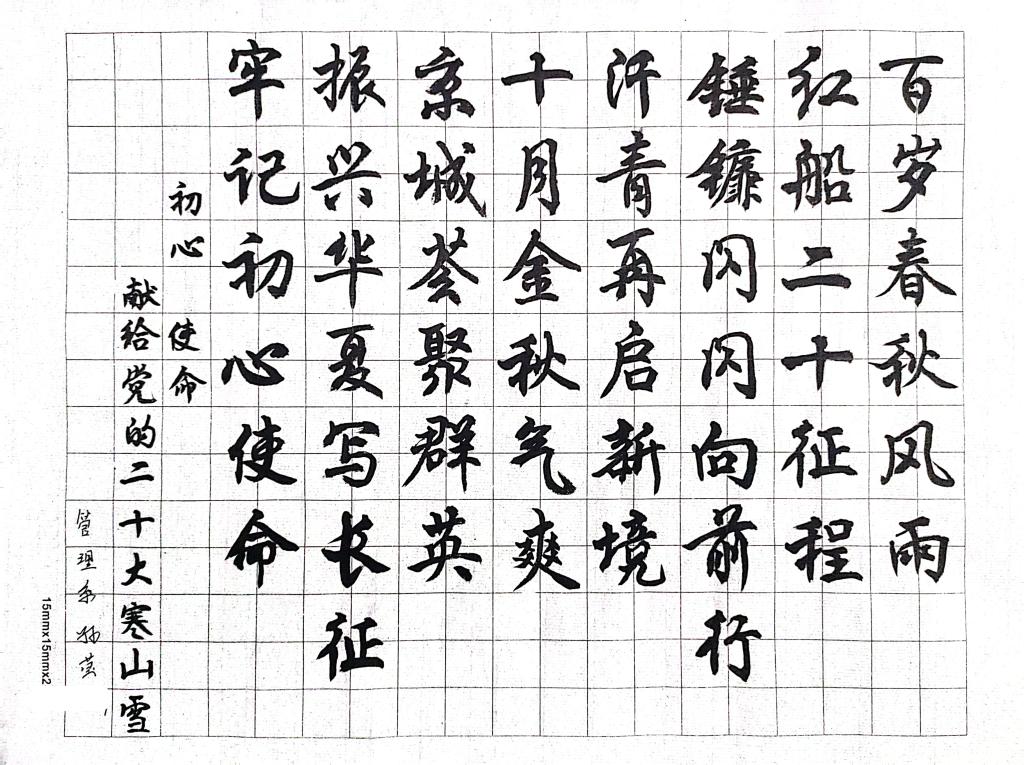 百岁春秋风雨
红船二十征程
锤镰闪闪向前行
汗青再启新境
十月金秋气爽
京城荟聚群英
振兴华夏写长征
牢记初心使命
初心 使命
献给党的二十大寒山雪
管理系 孙莹
15mmx15mmx2